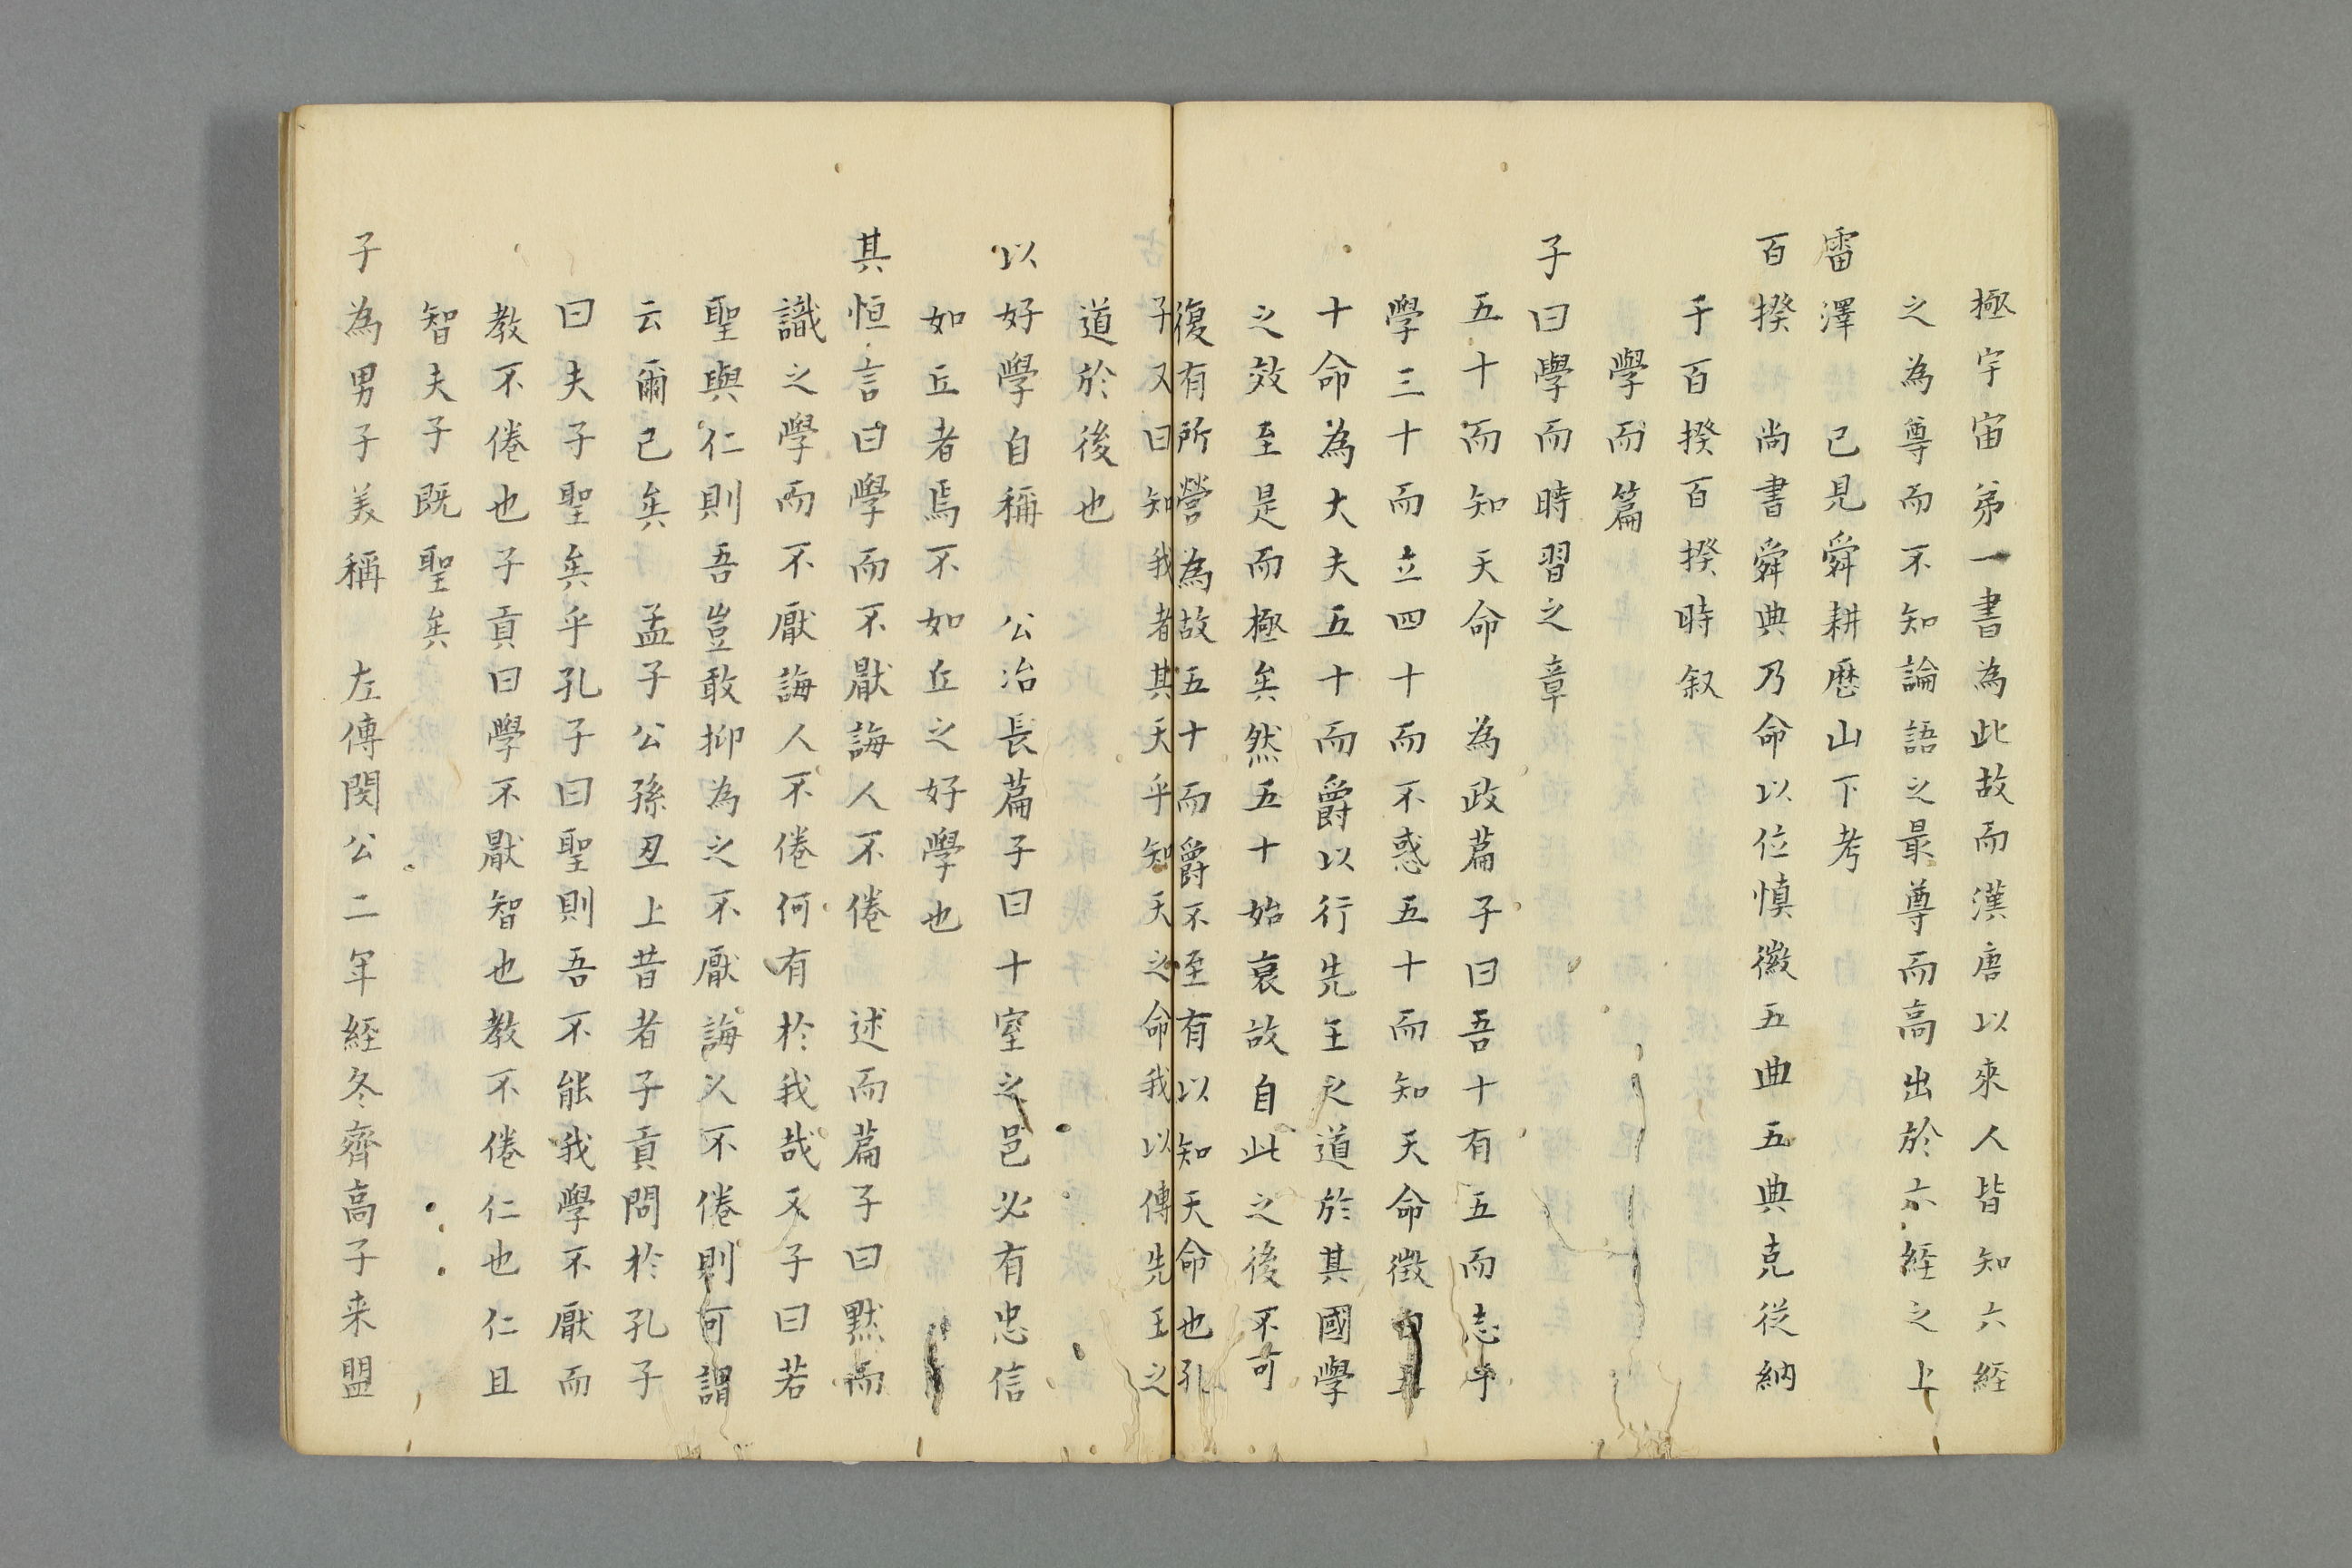 極宇宙弟一書為此故而漢唐以來人皆知六経
之為尊而不知論語之最尊而高出於六経之上
雷澤 已見舜耕歴山下考
百揆 尚書舜典乃命以位慎徽五典五典克従納
于百揆百揆時叙
學而篇
子曰學而時習之章
五十而知天命 為政篇子曰吾十有五而志乎
學三十而立四十而不惑五十而知天命徴
十命為大夫五十而爵以行先王之道於其國學
之效至是而極矣然五十始衰故自此之後不可
復有所營為故五十而爵不至有以知天命也孔
子又曰知我者其天乎知天之命我以傳先王之
道於後也
以好學自稱 公冶長篇子曰十室之邑必有忠信
如丘者焉不如丘之好學也
其恒言曰學而不厭誨人不倦 述而篇子曰黙而
識之學而不厭誨人不倦何有於我哉又子曰若
聖與仁則吾豈敢抑為之不厭誨人不倦則可謂
云爾已矣 孟子公孫丑上昔者子貢問於孔子
曰夫子聖矣乎孔子曰聖則吾不能我學不厭而
教不倦也子貢曰學不厭智也教不倦仁也仁且
智夫子既聖矣
子為男子美稱 左傳閔公二年経冬齊高子来盟